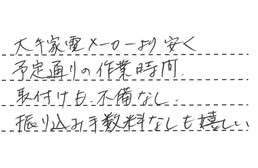 大手家電メーカーより安く
予定通りの作業時間
取付けも不備なし
振り込み手数料なしも嬉しい